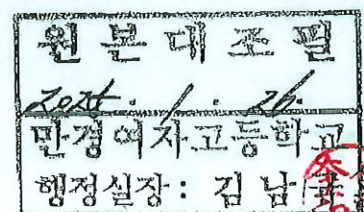 원본대조필
2024. 1. 26.
만경여자고등학교
행정실장: 김남